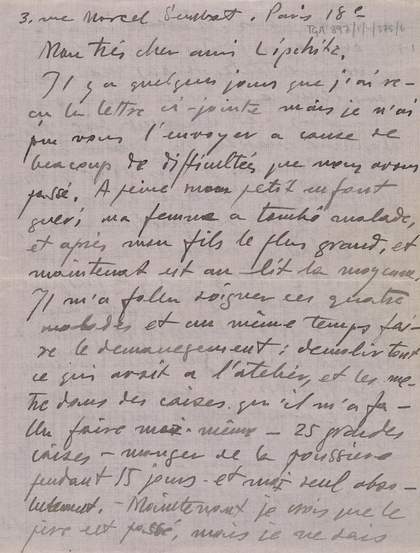 3. rue Marcel Sembat. Paris 18e
TGA 897/1/1/275/6
Mon très cher ami Lipchitz.
Il y a quelques jours que j'ai re-
çu la lettre ci-jointe mais je n'ai
pu vous l'envoyer a cause de
beaucoup de difficultées que nous avons
passé. A peine mon petit enfant
gueri, ma femme a tombé malade,
et après mon fils le plus grand, et
maintenat est au lit la moyenne,
Il m'a fallu soigner ces quatre
malades et au même temps fai-
re le demenegement; demolir tout
ce qui avait a l'atelier, et les me-
tre dans des caises qu'il m'a fa-
llu faire moi-même – 25 grandes
caises – manger de la poussiere
pendant 15 jours et moi seul abso-
lutement. – Maintenant je crois que le
pire est passé, mais je ne sais